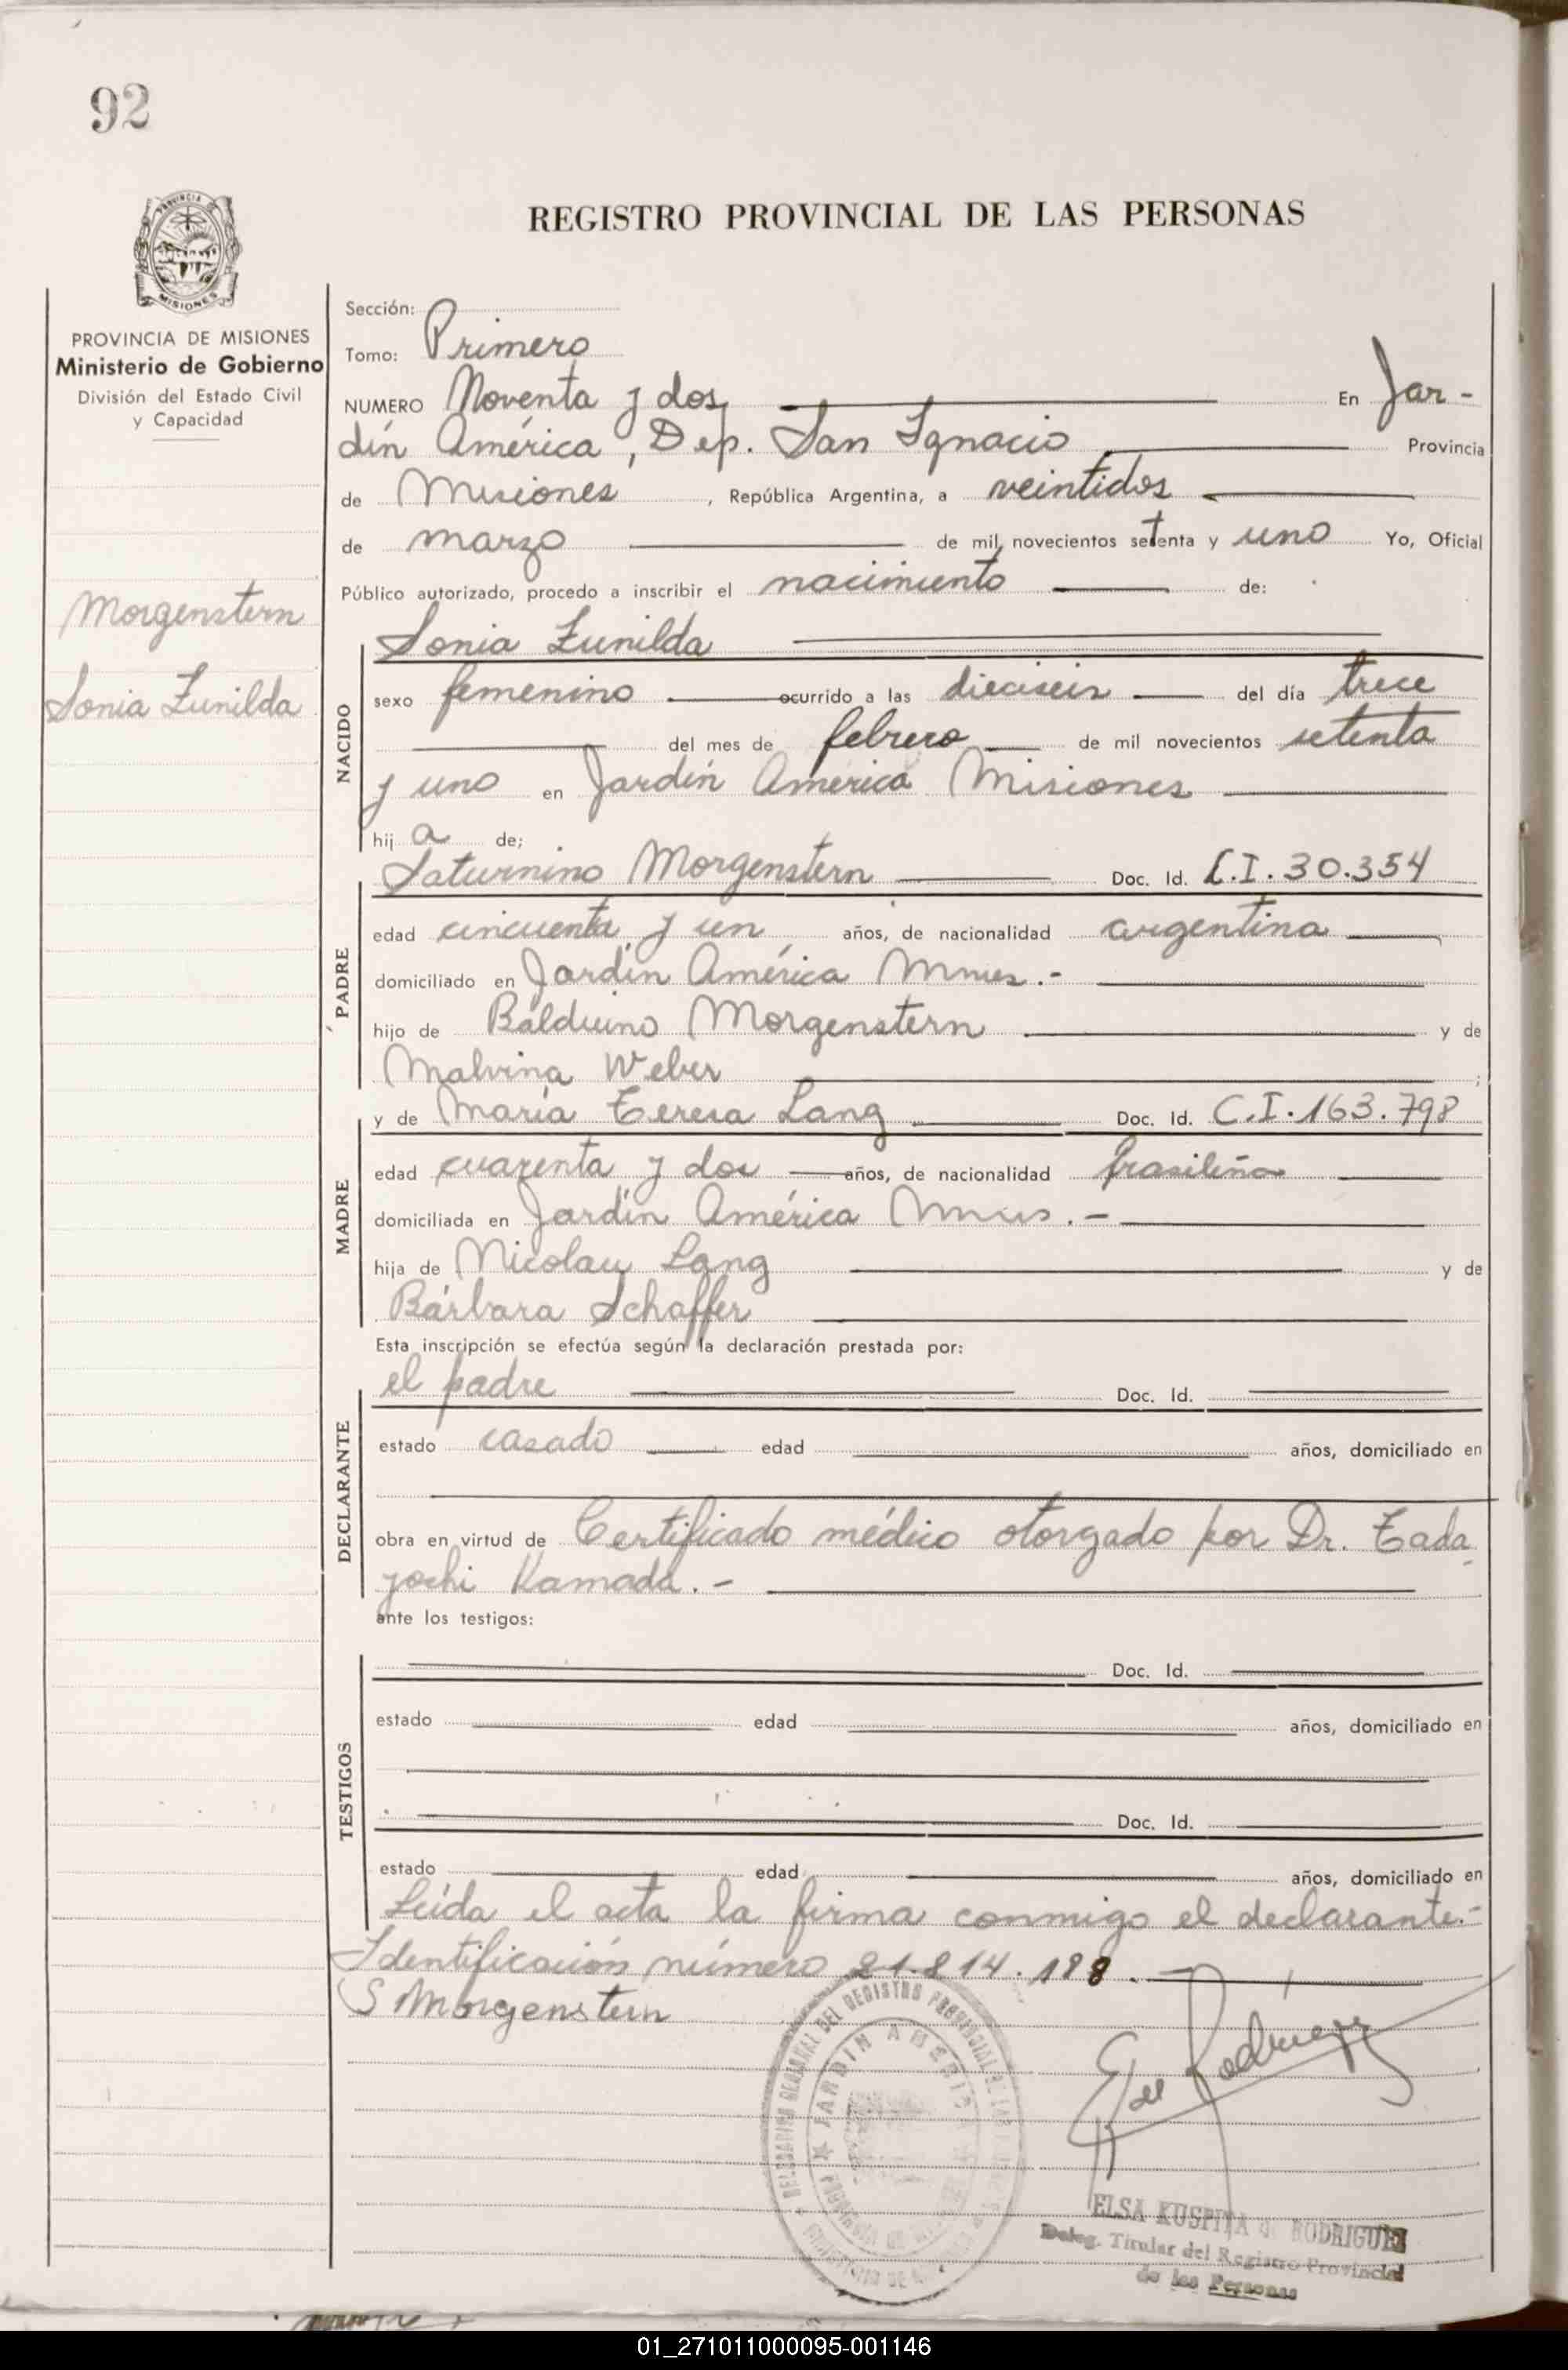 92
PROVINCIA DE MISIONES
Ministerio de Gobierno
División del Estado Civil
y Capacidad
Morgenstern
Sonia Zunilda
REGISTRO PROVINCIAL DE LAS PERSONAS
Sección:
Tomo: Primero
NUMERO Noventa y dos En Jar-
dín América, Dep. San Ignacio Provincia
de Misiones, República Argentina, a veintidos
de marzo de mil novecientos setenta y uno Yo, Oficial
Público autorizado, procedo a inscribir el nacimiento de:
NACIDO
Sonia Zunilda
sexo femenino ocurrido a las dieciseis del día trece
del mes de febrero de mil novecientos setenta
y uno en Jardín América Misiones
hij a de;
PADRE
Saturnino Morgenstern Doc. Id. C.I. 30.354
edad cincuenta y un años, de nacionalidad argentina
domiciliado en Jardín América Mnes.-
hijo de Balduino Morgenstern y de
Malvina Weber ;
MADRE
y de María Teresa Lang Doc. Id. C.I. 163.798
edad cuarenta y dos años, de nacionalidad brasileña
domiciliada en Jardín América Mnes.-
hija de Nicolau Lang y de
Bárbara Schaffer
Esta inscripción se efectúa según la declaración prestada por:
DECLARANTE
el padre Doc. Id.
estado casado edad años, domiciliado en
obra en virtud de Certificado médico otorgado por Dr. Tada
yochi Kamada.-
ante los testigos:
TESTIGOS
Doc. Id.
estado edad años, domiciliado en
Doc. Id.
estado edad años, domiciliado en
Leída el acta la firma conmigo el declarante.-
Identificación número 21.814.188.-
S Morgenstern
JARDIN AMERICA
ELSA KUSPITA de RODRIGUEZ
Deleg. Titular del Registro Provincial
de las Personas
01_271011000095-001146